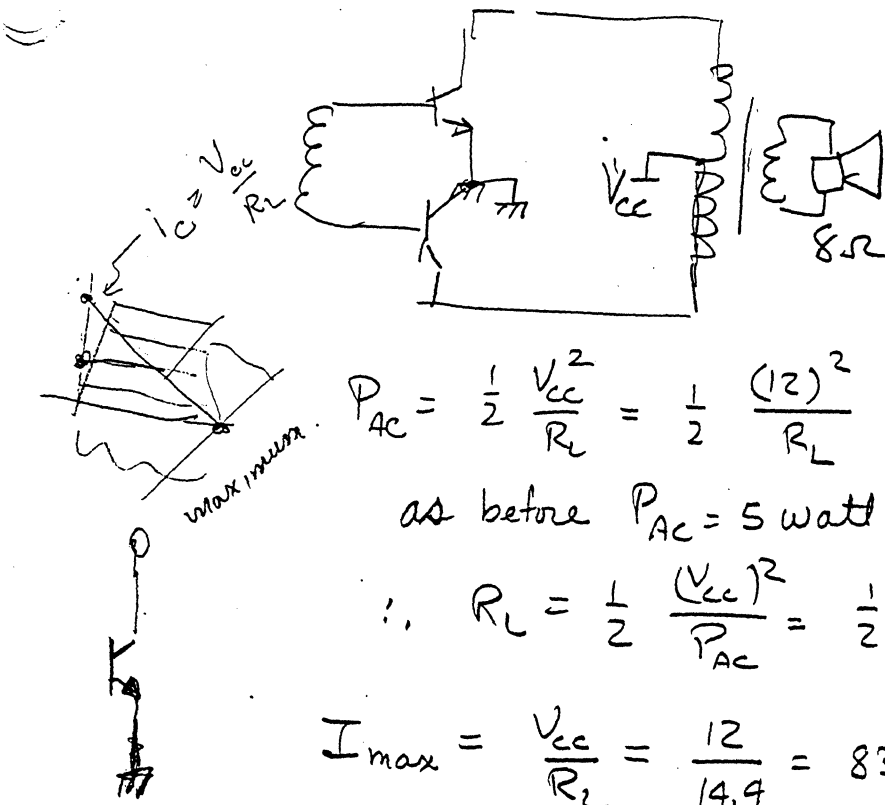 i_C = V_cc / R_L
V_cc
8Ω
P_AC = 1/2 V_cc^2 / R_L = 1/2 (12)^2 / R_L
maximum.
as before P_AC = 5 watt
∴ R_L = 1/2 (V_cc)^2 / P_AC = 1/2
I_max = V_cc / R_L = 12 / 14.4 = 83